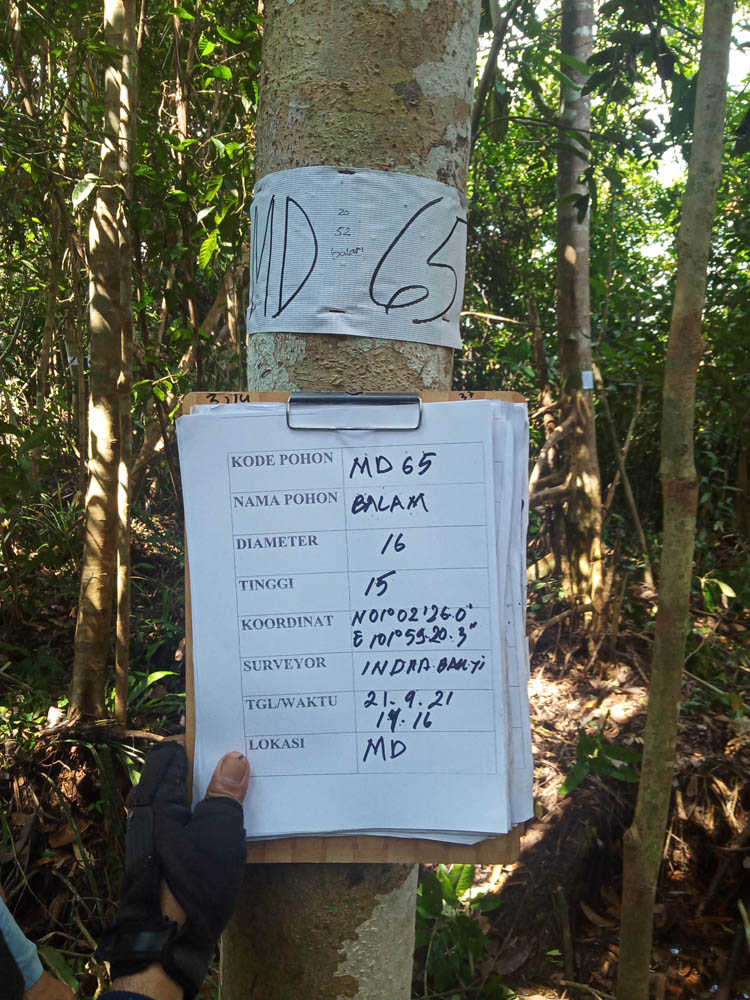 MD 65
20
52
balam
KODE POHON MD 65
NAMA POHON BALAM
DIAMETER 16
TINGGI 15
KOORDINAT N 01° 02' 36.0"
E 101° 59.20.3"
SURVEYOR INDRA
TGL/WAKTU 21.9.21
14.16
LOKASI MD